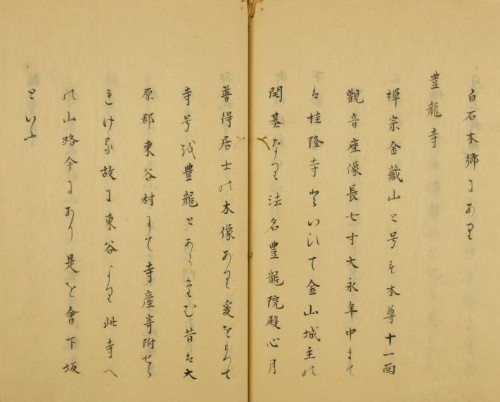 白石本郷にあり
豊龍寺
禅宗金蔵山と号す本尊十一面
観音座像長七寸大永年中まて
は桂隆寺といひて金山城主の
開基なり法名豊龍院殿心月
善得居士の木像あり爰をもつて
寺号を豊龍とあらたむ昔は大
原郡東谷村にて寺産寄附せら
れける故に東谷より此寺へ
の山路今にあり是を會下坂
といふ